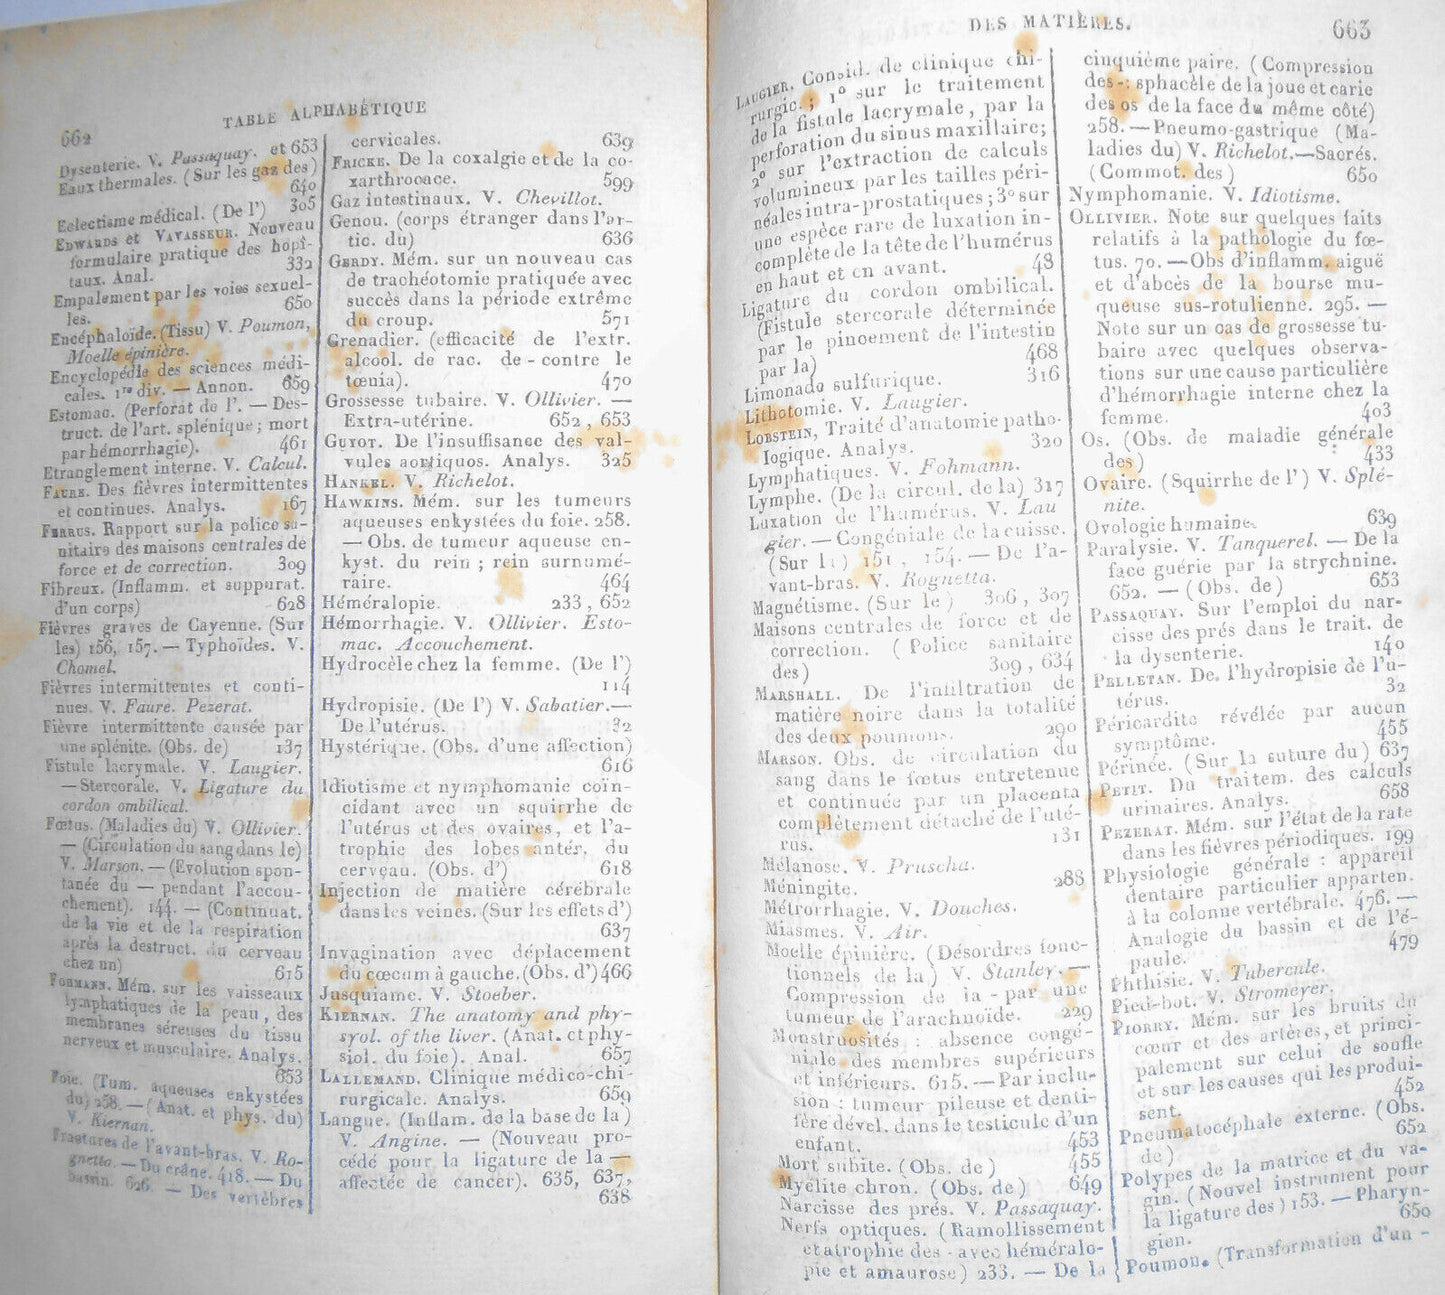 662
TABLE ALPHABÉTIQUE
Dysenterie. V. Passaquay. et 653
Eaux thermales. (Sur les gaz des)
640
Eclectisme médical. (De l') 305
EDWARDS et VAVASSEUR. Nouveau
formulaire pratique des hopî-
taux. Anal. 332
Empalement par les voies sexuel-
les. 650
Encéphaloïde. (Tissu) V. Poumon,
Moelle épinière.
Encyclopédie des sciences médi-
cales. 1re div. — Annon. 659
Estomac. (Perforat de l'. — Des-
truct. de l'art. splénique; mort
par hémorrhagie). 461
Etranglement interne. V. Calcul.
FAURE. Des fièvres intermittentes
et continues. Analys. 167
FERRUS. Rapport sur la police sa-
nitaire des maisons centrales de
force et de correction. 309
Fibreux. (Inflamm. et suppurat.
d'un corps) 628
Fièvres graves de Cayenne. (Sur
les) 156, 157. — Typhoïdes. V.
Chomel.
Fièvres intermittentes et conti-
nues. V. Faure. Pezerat.
Fièvre intermittente causée par
une splénite. (Obs. de) 137
Fistule lacrymale. V. Laugier.
— Stercorale. V. Ligature du
cordon ombilical.
Fœtus. (Maladies du) V. Ollivier.
— (Circulation du sang dans le)
V. Marson. — (Evolution spon-
tanée du — pendant l'accou-
chement). 144. — (Continuat.
de la vie et de la respiration
après la destruct. du cerveau
chez un) 615
FOHMANN. Mém. sur les vaisseaux
lymphatiques de la peau, des
membranes séreuses du tissu
nerveux et musculaire. Analys.
653
Foie. (Tum. aqueuses enkystées
du) 258. — (Anat. et phys. du)
V. Kiernan.
Fractures de l'avant-bras. V. Ro-
gnetta. — Du crâne. 418. — Du
bassin. 626. — Des vertèbres
cervicales. 639
FRICKE. De la coxalgie et de la co-
xarthrocace. 599
Gaz intestinaux. V. Chevillot.
Genou. (corps étranger dans l'ar-
tic. du) 636
GERDY. Mém. sur un nouveau cas
de trachéotomie pratiquée avec
succès dans la période extrême
du croup. 571
Grenadier. (efficacité de l'extr.
alcool. de rac. de - contre le
tœnia). 470
Grossesse tubaire. V. Ollivier. —
Extra-utérine. 652, 653
GUYOT. De l'insuffisance des val-
vules aortiques. Analys. 325
HANKEL. V. Richelot.
HAWKINS. Mém. sur les tumeurs
aqueuses enkystées du foie. 258.
— Obs. de tumeur aqueuse en-
kyst. du rein; rein surnumé-
raire. 464
Héméralopie. 233, 652
Hémorrhagie. V. Ollivier. Esto-
mac. Accouchement.
Hydrocèle chez la femme. (De l')
114
Hydropisie. (De l') V. Sabatier.—
De l'utérus. 32
Hystérique. (Obs. d'une affection)
616
Idiotisme et nymphomanie coïn-
cidant avec un squirrhe de
l'utérus et des ovaires, et l'a-
trophie des lobes antér. du
cerveau. (Obs. d') 618
Injection de matière cérébrale
dans les veines. (Sur les effets d')
637
Invagination avec déplacement
du cœcum à gauche. (Obs. d') 466
Jusquiame. V. Stoeber.
KIERNAN. The anatomy and phy-
syol. of the liver. (Anat. et phy-
siol. du foie). Anal. 657
LALLEMAND. Clinique médico-chi-
rurgicale. Analys. 659
Langue. (Inflam. de la base de la)
V. Angine. — (Nouveau pro-
cédé pour la ligature de la —
affectée de cancer). 635, 637,
638
DES MATIÈRES.
663
LAUGIER. Consid. de clinique chi-
rurgic.; 1° sur le traitement
de la fistule lacrymale, par la
perforation du sinus maxillaire;
2° sur l'extraction de calculs
volumineux par les tailles péri-
néales intra-prostatiques; 3° sur
une espèce rare de luxation in-
complète de la tête de l'humérus
en haut et en avant. 48
Ligature du cordon ombilical.
(Fistule stercorale déterminée
par le pincement de l'intestin
par la) 468
Limonade sulfurique. 316
Lithotomie. V. Laugier.
LOBSTEIN, Traité d'anatomie patho-
logique. Analys. 320
Lymphatiques. V. Fohmann.
Lymphe. (De la circul. de la) 317
Luxation de l'humérus. V. Lau
gier. — Congéniale de la cuisse.
(Sur la) 151, 154. — De l'a-
vant-bras. V. Rognetta.
Magnétisme. (Sur le) 306, 307
Maisons centrales de force et de
correction. (Police sanitaire
des) 309, 634
MARSHALL. De l'infiltration de
matière noire dans la totalité
des deux poumons. 290
MARSON. Obs. de circulation du
sang dans le fœtus entretenue
et continuée par un placenta
complètement détaché de l'uté-
rus. 131
Mélanose. V. Pruscha.
Méningite. 288
Métrorrhagie. V. Douches.
Miasmes. V. Air.
Moelle épinière. (Désordres fonc-
tionnels de la) V. Stanley. —
Compression de la - par une
tumeur de l'arachnoïde. 229
Monstruosités : absence congé-
niale des membres supérieurs
et inférieurs. 615. — Par inclu-
sion : tumeur pileuse et denti-
fère dével. dans le testicule d'un
enfant. 453
Mort subite. (Obs. de) 455
Myélite chron. (Obs. de) 649
Narcisse des prés. V. Passaquay.
Nerfs optiques. (Ramollissement
et atrophie des - avec héméralo-
pie et amaurose) 233. — De la
cinquième paire. (Compression
des -: sphacèle de la joue et carie
des os de la face du même côté)
258. — Pneumo-gastrique (Ma-
ladies du) V. Richelot.—Sacrés.
(Commot. des) 650
Nymphomanie. V. Idiotisme.
OLLIVIER. Note sur quelques faits
relatifs à la pathologie du fœ-
tus. 70. — Obs d'inflamm. aiguë
et d'abcès de la bourse mu-
queuse sus-rotulienne. 295. —
Note sur un cas de grossesse tu-
baire avec quelques observa-
tions sur une cause particulière
d'hémorrhagie interne chez la
femme. 403
Os. (Obs. de maladie générale
des) 433
Ovaire. (Squirrhe de l') V. Splé-
nite.
Ovologie humaine. 639
Paralysie. V. Tanquerel. — De la
face guérie par la strychnine.
652. — (Obs. de) 653
PASSAQUAY. Sur l'emploi du nar-
cisse des prés dans le trait. de
la dysenterie. 140
PELLETAN. De l'hydropisie de l'u-
térus. 32
Péricardite révélée par aucun
symptôme. 455
Périnée. (Sur la suture du) 637
PETIT. Du traitem. des calculs
urinaires. Analys. 658
PEZERAT. Mém. sur l'état de la rate
dans les fièvres périodiques. 199
Physiologie générale : appareil
dentaire particulier apparten.
à la colonne vertébrale. 476. —
Analogie du bassin et de l'é-
paule. 479
Phthisie. V. Tubercule.
Pied-bot. V. Stromeyer.
PIORRY. Mém. sur les bruits du
cœur et des artères, et princi-
palement sur celui de soufle
et sur les causes qui les produi-
sent. 452
Pneumatocéphale externe. (Obs.
de) 652
Polypes de la matrice et du va-
gin. (Nouvel instrument pour
la ligature des) 153. — Pharyn-
gien. 650
Poumon. (Transformation d'un -